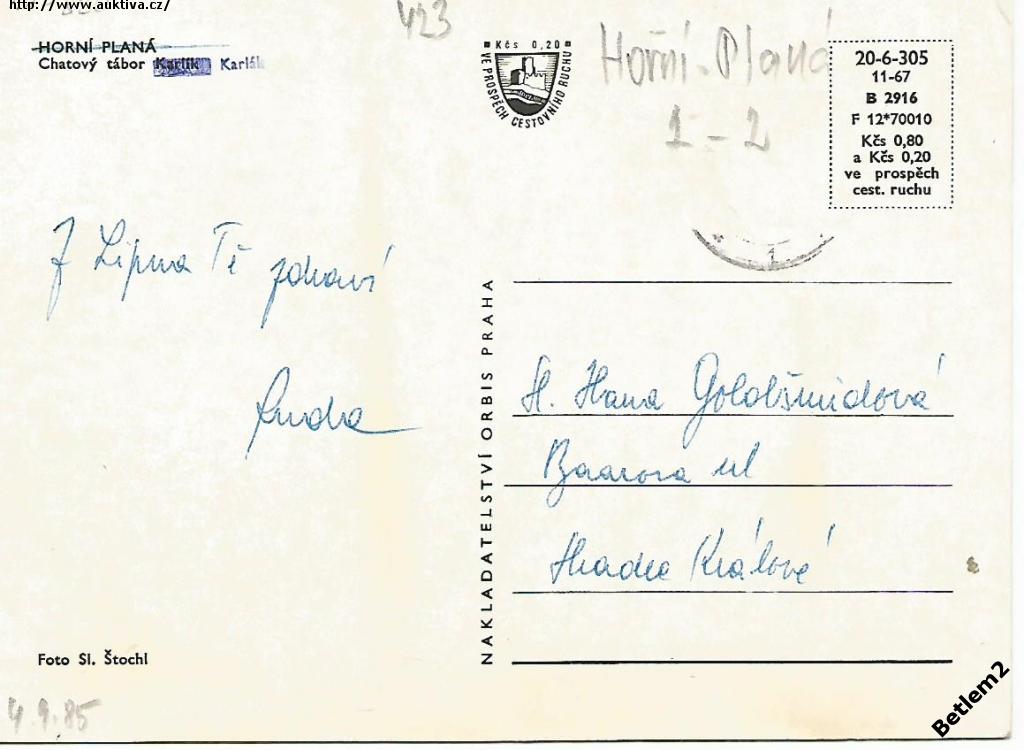 http://www.auktiva.cz/
423
HORNÍ PLANÁ
Chatový tábor Karlík Karlák
Kčs 0,20
VE PROSPĚCH CESTOVNÍHO RUCHU
Horní-Planá
1-2
20-6-305
11-67
B 2916
F 12*70010
Kčs 0,80
a Kčs 0,20
ve prospěch
cest. ruchu
Z Lipna Tě zdraví
NAKLADATELSTVÍ ORBIS PRAHA
Hana Goldšmidová
Baarova ul
Hradec Králové
Foto Sl. Štochl
4.9.85
Betlem2